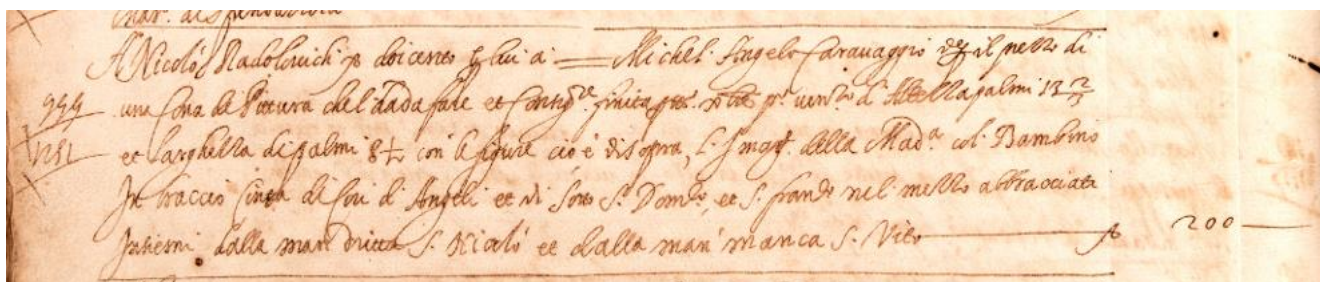 A Nicolò Radolovich D. doicento e per lui a Michel Angelo Caravaggio per il prezzo di
999 una Cona de Pittura che l'ha da fare et consig.re finita per tutto x.bre p.o vent.o d'Altezza palmi 13 2/3
1251 et larghezza di palmi 8 1/2 con le figure cioè di sopra, l'Imag.e della Mad.a col Bambino
In braccio cinta di Cori d'Angeli et di sotto S. Dom.co, et S. Fran.co nel mezzo abbracciati
Insiemi dalla man dritta S. Nicolò et dalla man' manca S. Vito D. 200